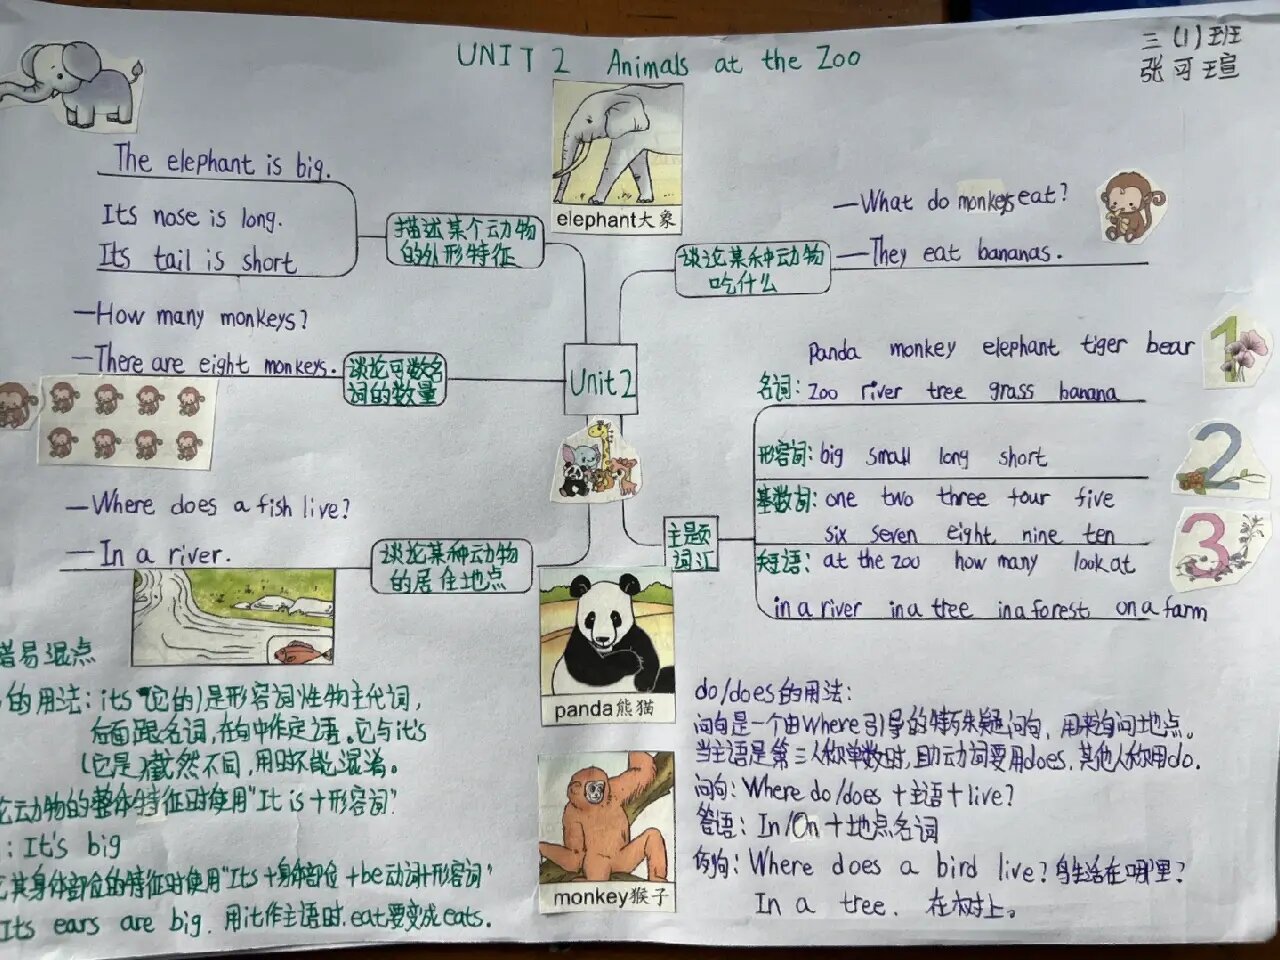 UNIT 2 Animals at the Zoo
三(1)班
张可瑄
The elephant is big.
Its nose is long.
Its tail is short
描述某个动物
的外形特征
elephant大象
—What do monkeys eat?
—They eat bananas.
谈论某种动物
吃什么
—How many monkeys?
—There are eight monkeys.
谈论可数名
词的数量
Unit2
panda monkey elephant tiger bear
名词: Zoo river tree grass banana
形容词: big small long short
基数词: one two three four five
six seven eight nine ten
短语: at the zoo how many look at
in a river in a tree in a forest on a farm
主题
词汇
1
2
3
—Where does a fish live?
—In a river.
谈论某种动物
的居住地点
panda熊猫
monkey猴子
易混点
的用法: its(它的)是形容词性物主代词,
后面跟名词,在句中作定语。它与it's
(它是)截然不同,用时不能混淆。
动物的整体特征时使用"It is+形容词"
: It's big
其身体部位的特征时使用"Its+身体部位+be动词+形容词"
Its ears are big. 用it作主语时.eat要变成eats.
do/does的用法:
问句是一个由Where引导的特殊疑问句,用来询问地点。
当主语是第三人称单数时,助动词要用does,其他人称用do.
问句: Where do/does+主语+live?
答语: In/On+地点名词
例句: Where does a bird live? 鸟生活在哪里?
In a tree. 在树上。